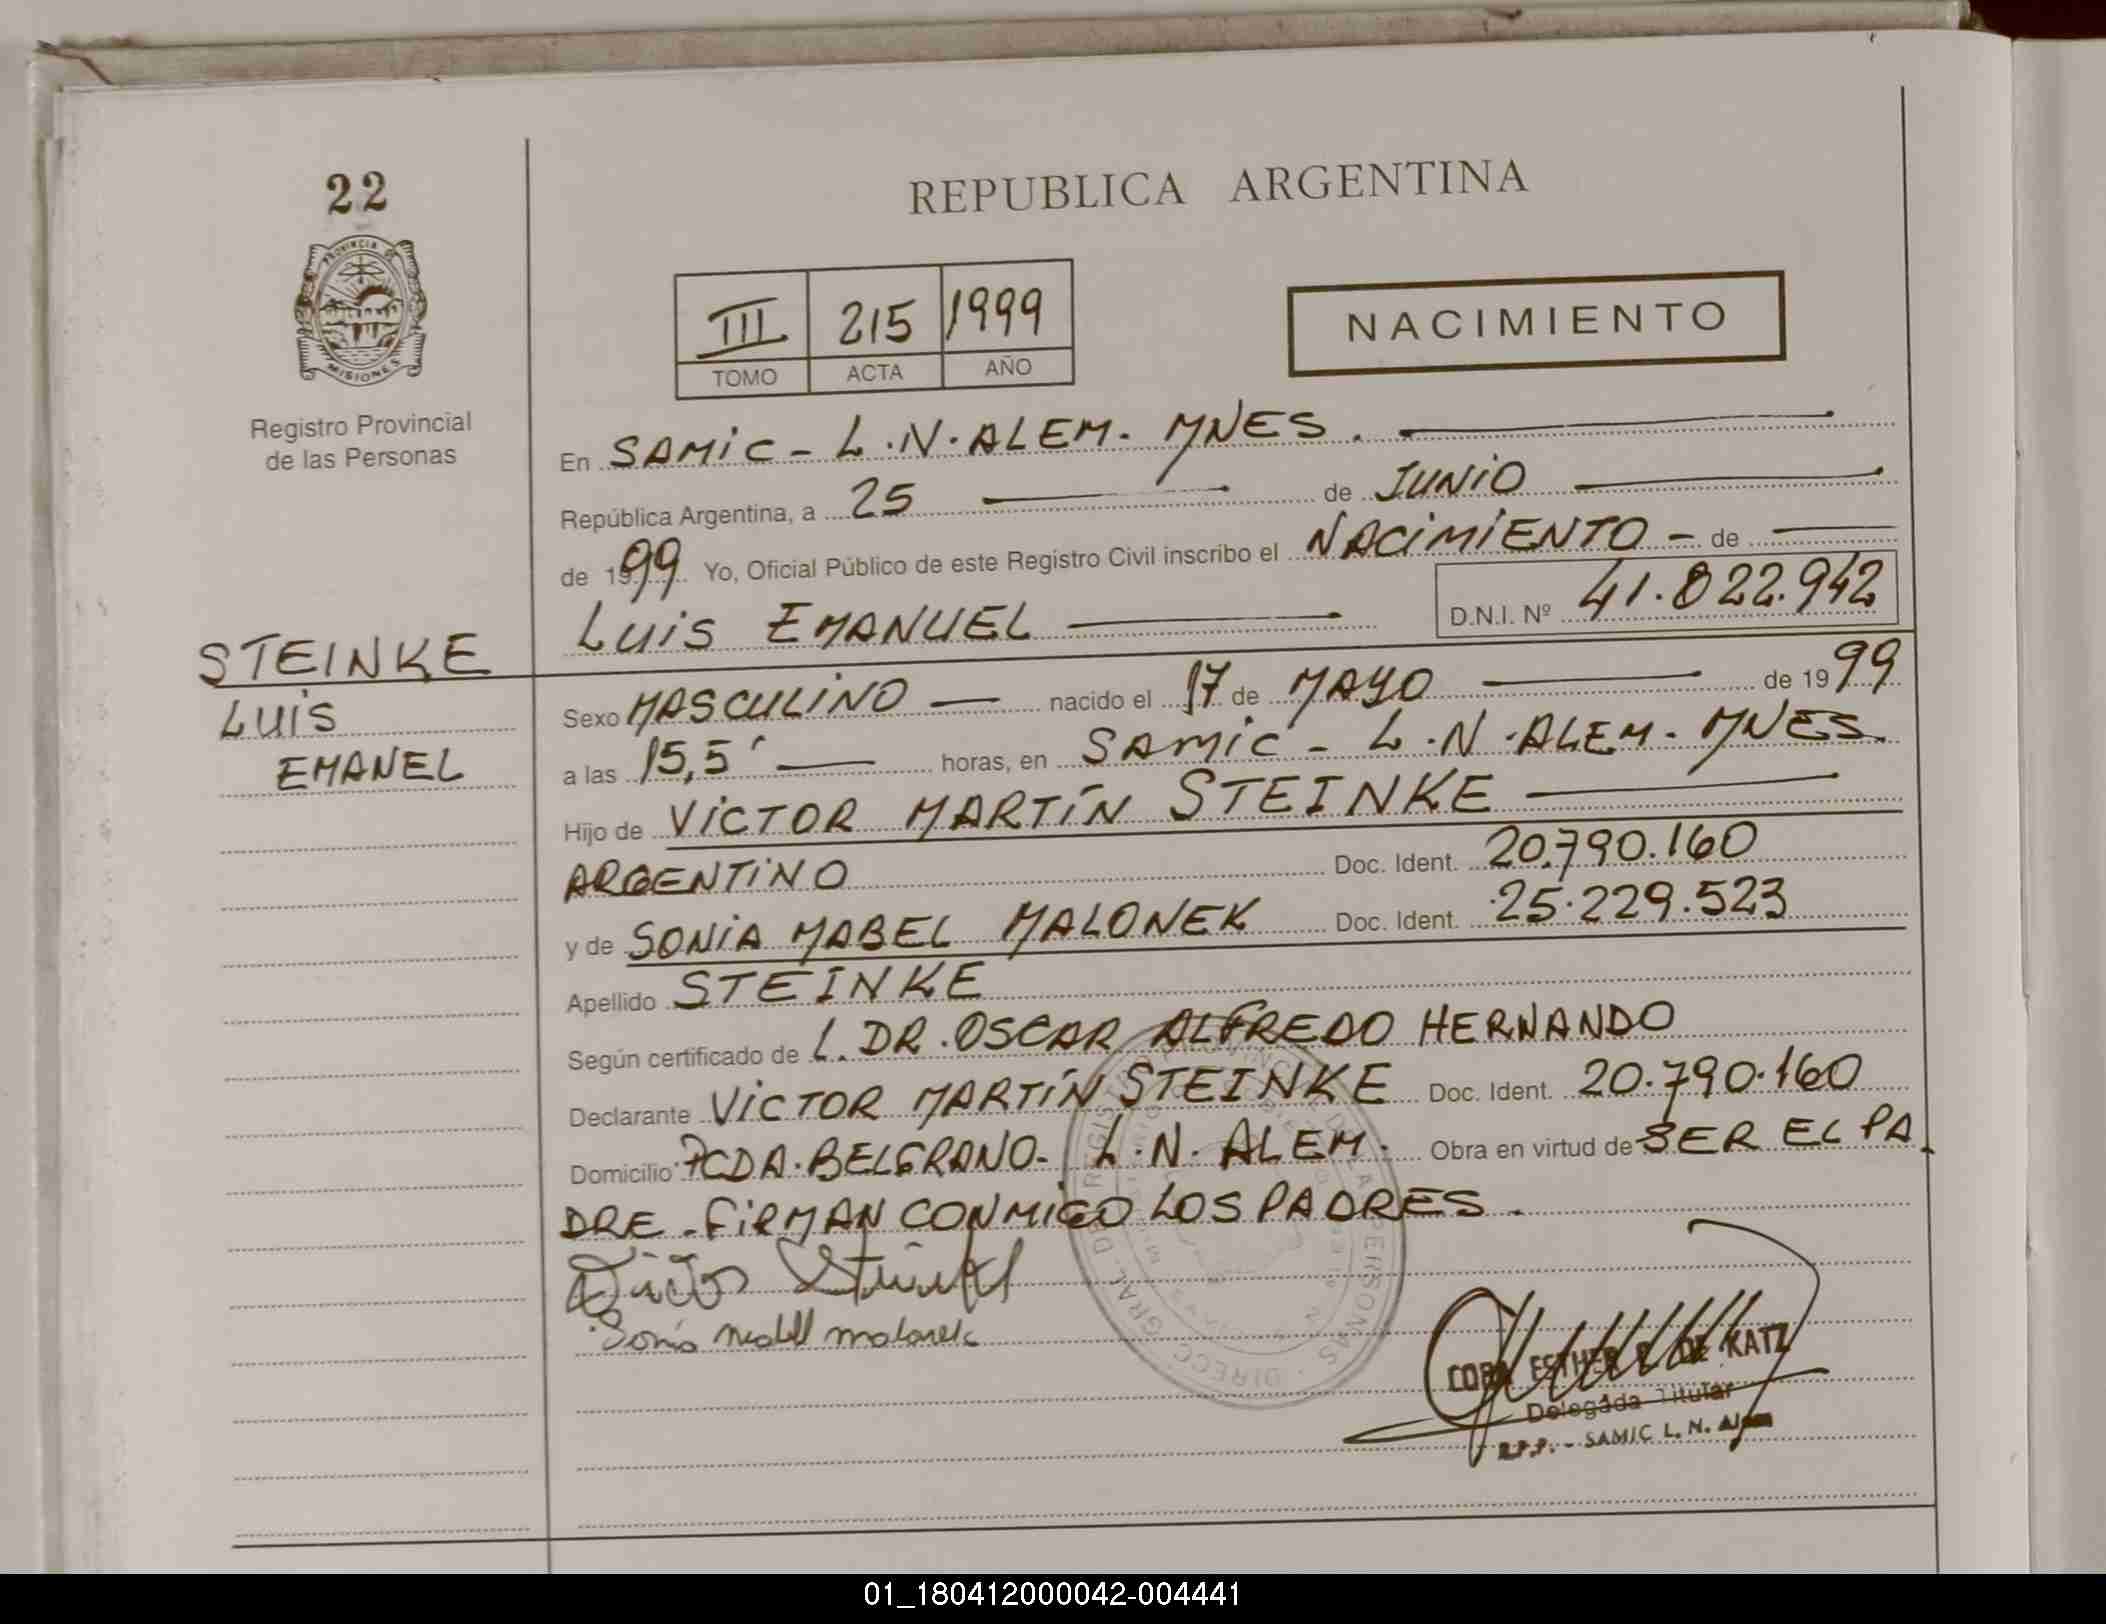 22
PROVINCIA DE
MISIONES
Registro Provincial
de las Personas
STEINKE
LUIS
EMANEL
REPUBLICA ARGENTINA
III 215 1999
TOMO ACTA AÑO
NACIMIENTO
En SAMIC - L.N. ALEM. MNES.
República Argentina, a 25 de JUNIO
de 1999 Yo, Oficial Público de este Registro Civil inscribo el NACIMIENTO - de
LUIS EMANUEL D.N.I. Nº 41.822.942
Sexo MASCULINO nacido el 17 de MAYO de 1999
a las 15,5´ horas, en SAMIC - L.N. ALEM. MNES.
Hijo de VICTOR MARTÍN STEINKE
ARGENTINO Doc. Ident. 20.790.160
y de SONIA MABEL MALONEK Doc. Ident. 25.229.523
Apellido STEINKE
Según certificado de L. DR. OSCAR ALFREDO HERNANDO
Declarante VICTOR MARTÍN STEINKE Doc. Ident. 20.790.160
Domicilio PCDA. BELGRANO. L.N. ALEM. Obra en virtud de SER EL PA
DRE - FIRMAN CONMIGO LOS PADRES.
Victor Steinke
Sonia Mabel Malonek
ESTHER DE KATZ
Delegada Titular
R.P.P. - SAMIC L. N. Alem
01_180412000042-004441